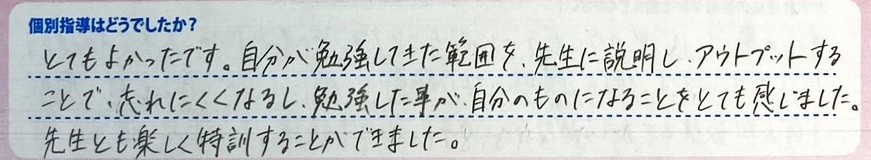 個別指導はどうでしたか？
とてもよかったです。自分が勉強してきた範囲を、先生に説明し、アウトプットする
ことで、忘れにくくなるし、勉強した事が、自分のものになることをとても感じました。
先生とも楽しく特訓することができました。